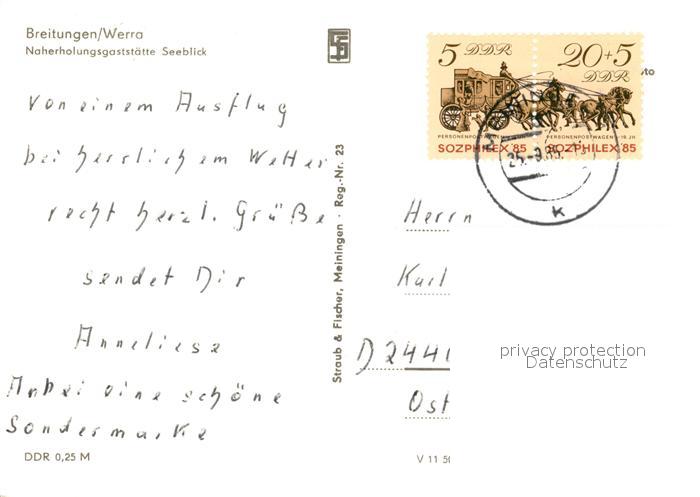 Breitungen/Werra
Naherholungsgaststätte Seeblick
von einem Ausflug
bei herrlichem Wetter
recht herzl. Grüße
sendet Dir
Anneliese
Anbei eine schöne
Sondermarke
DDR 0,25 M
Straub & Fischer, Meiningen · Reg.-Nr. 23
5 DDR
20+5
DDR
PERSONENPOSTWAGEN · 19. JH
SOZPHILEX '85 SOZPHILEX '85
k
Herrn
Karl
D 2440
Ost
V 11 50
privacy protection
Datenschutz